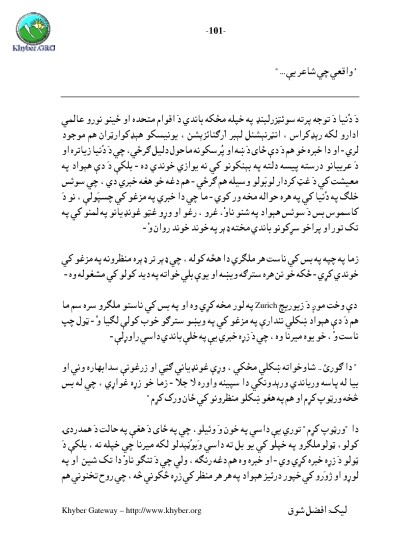 Khyber.ORG
-101-
"واقعي چې شاعر يې..."
دَ دُنيا دَ توجه پرته سوئټزرلېنډ په خپله مځکه باندې دَ اقوام متحده او ځينو نورو عالمي
ادارو لکه رېډکراس ، انټرنېشنل لېبر ارګنائزېشن ، يونيسکو هېډکوارټران هم موجود
لري - او دا خبره خو هم دَ دې ځاى دَ ښه او پُرسکونه ماحول دليل ګرځي، چې دَ دُنيا زياتره او
دَ عربيانو درسته پيسه دلته په بېنکونو کې نه يوازې خوندي ده - بلکې دَ دې هېواد په
معيشت کې دَ غټ کردار لوبَولو وسيله هم ګرځي - هم دغه خو هغه خبرې دي ، چې سوئس
خلګ په دُنيا کې په هره حواله مخ ور کوي - ما چې دا خبرې په مزغو کې چسپَولې ، نو دَ
کاسموس بس دَ سوئس هېواد په شنو ناو، غرو ، رغو او وړو غټو غونډيانو په لمنو کې په
تک تور او پراخو سړکونو باندې مخته ډېر په خوند خوند روان وُ -
زما په چپه په بس کې ناست هر ملګري دا هڅه کوله ، چې ډېر تر ډېره منظرونه په مزغو کې
خوندي کړي - ځکه خو تن هره سترګه ويښه او يوې بلې خواته په ديد کولو کې مشغوله وه -
دې وخت موږ دَ زيوريچ Zurich په لور مخه کړې وه او په بس کې ناستو ملګرو سره سم ما
هم دَ دې هېواد ښکلي تنداري په مزغو کې په ويښو سترګو خوب کولې لګيا وُ - ټول چپ
ناست وُ ، خو يوه ميرنا وه ، چې دَ زړه خبرې يې په خلې باندې داسې راوړلې -
"دا ګورئ... شاوخواته ښکلې مځکې ، وړې غونډيانې ګټې او زرغونې سدابهاره ونې او
بيا له پاسه ورباندې ورېدونکې دا سپينه واوره لا جلا - زما خو زړه غواړي ، چې له بس
څخه ورټوپ کړم او هم په هغو ښکلو منظرونو کې ځان ورک کړم"
دا "ورټوپ کړم" تورې يې داسې په خون وَ وئيلو ، چې په ځاى دَ هغې په حالت دَ همدردۍ
کولو ، ټولو ملګرو په خپلو کې يو بل ته داسې وَبوُږېدلو لکه ميرنا چې خپله نه ، بلکې دَ
ټولو دَ زړه خبره کړې وي - او خبره وه هم دغه رنګه ، ولې چې دَ تنګو ناو دا تک شين او په
لوړو او ژورو کې خپور درنيز هېواد په هر هر منظر کې زړه ښکوني څه ، چې روح تخنونې هم
Khyber Gateway – http://www.khyber.org
ليک: افضل شوق